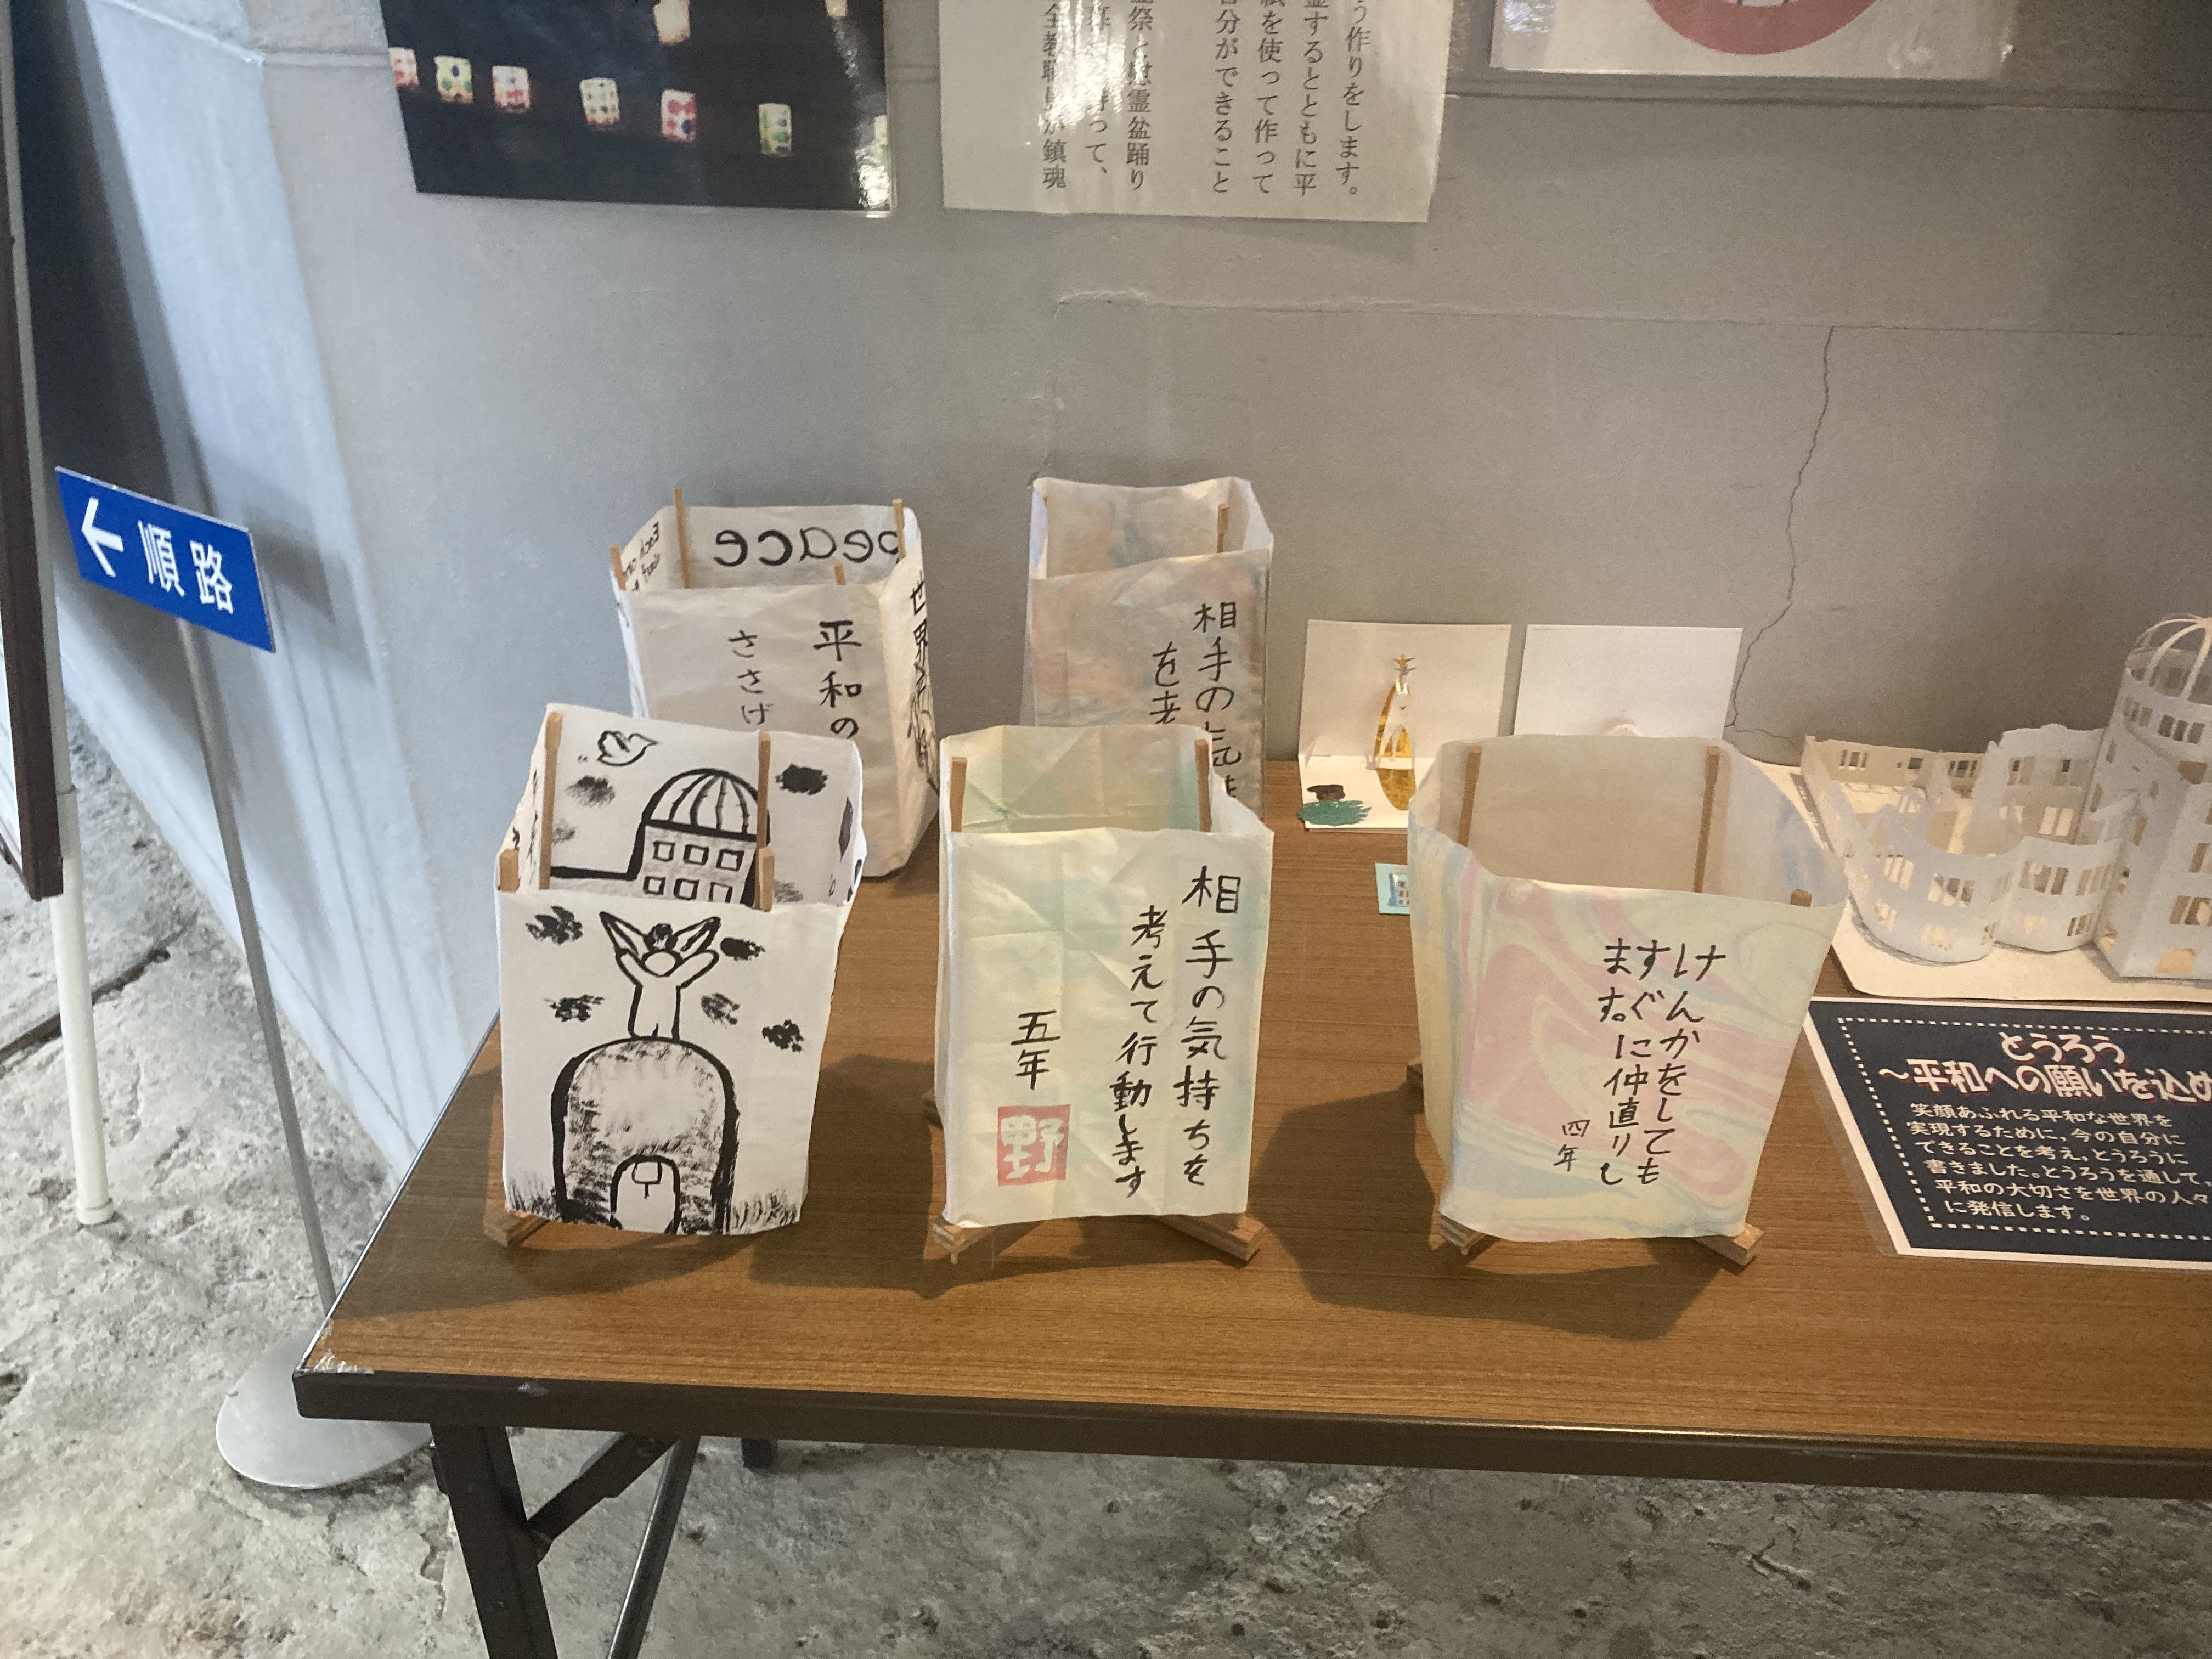 う作りをします。
霊するとともに平
紙を使って作って
自分ができること
祭と慰霊盆踊り
って、
全教職員が鎮魂
順路
peace
平和の
ささげ
世界
相手の気持
を考
相手の気持ちを
考えて行動します
五年
野
けんかをしても
すぐに仲直りし
ます。
四年
とうろう
～平和への願いを込め
笑顔あふれる平和な世界を
実現するために,今の自分に
できることを考え,とうろうに
書きました。とうろうを通して,
平和の大切さを世界の人々
に発信します。